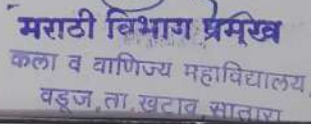 मराठी विभाग प्रमुख
कला व वाणिज्य महाविद्यालय
वडूज, ता. खटाव, सातारा